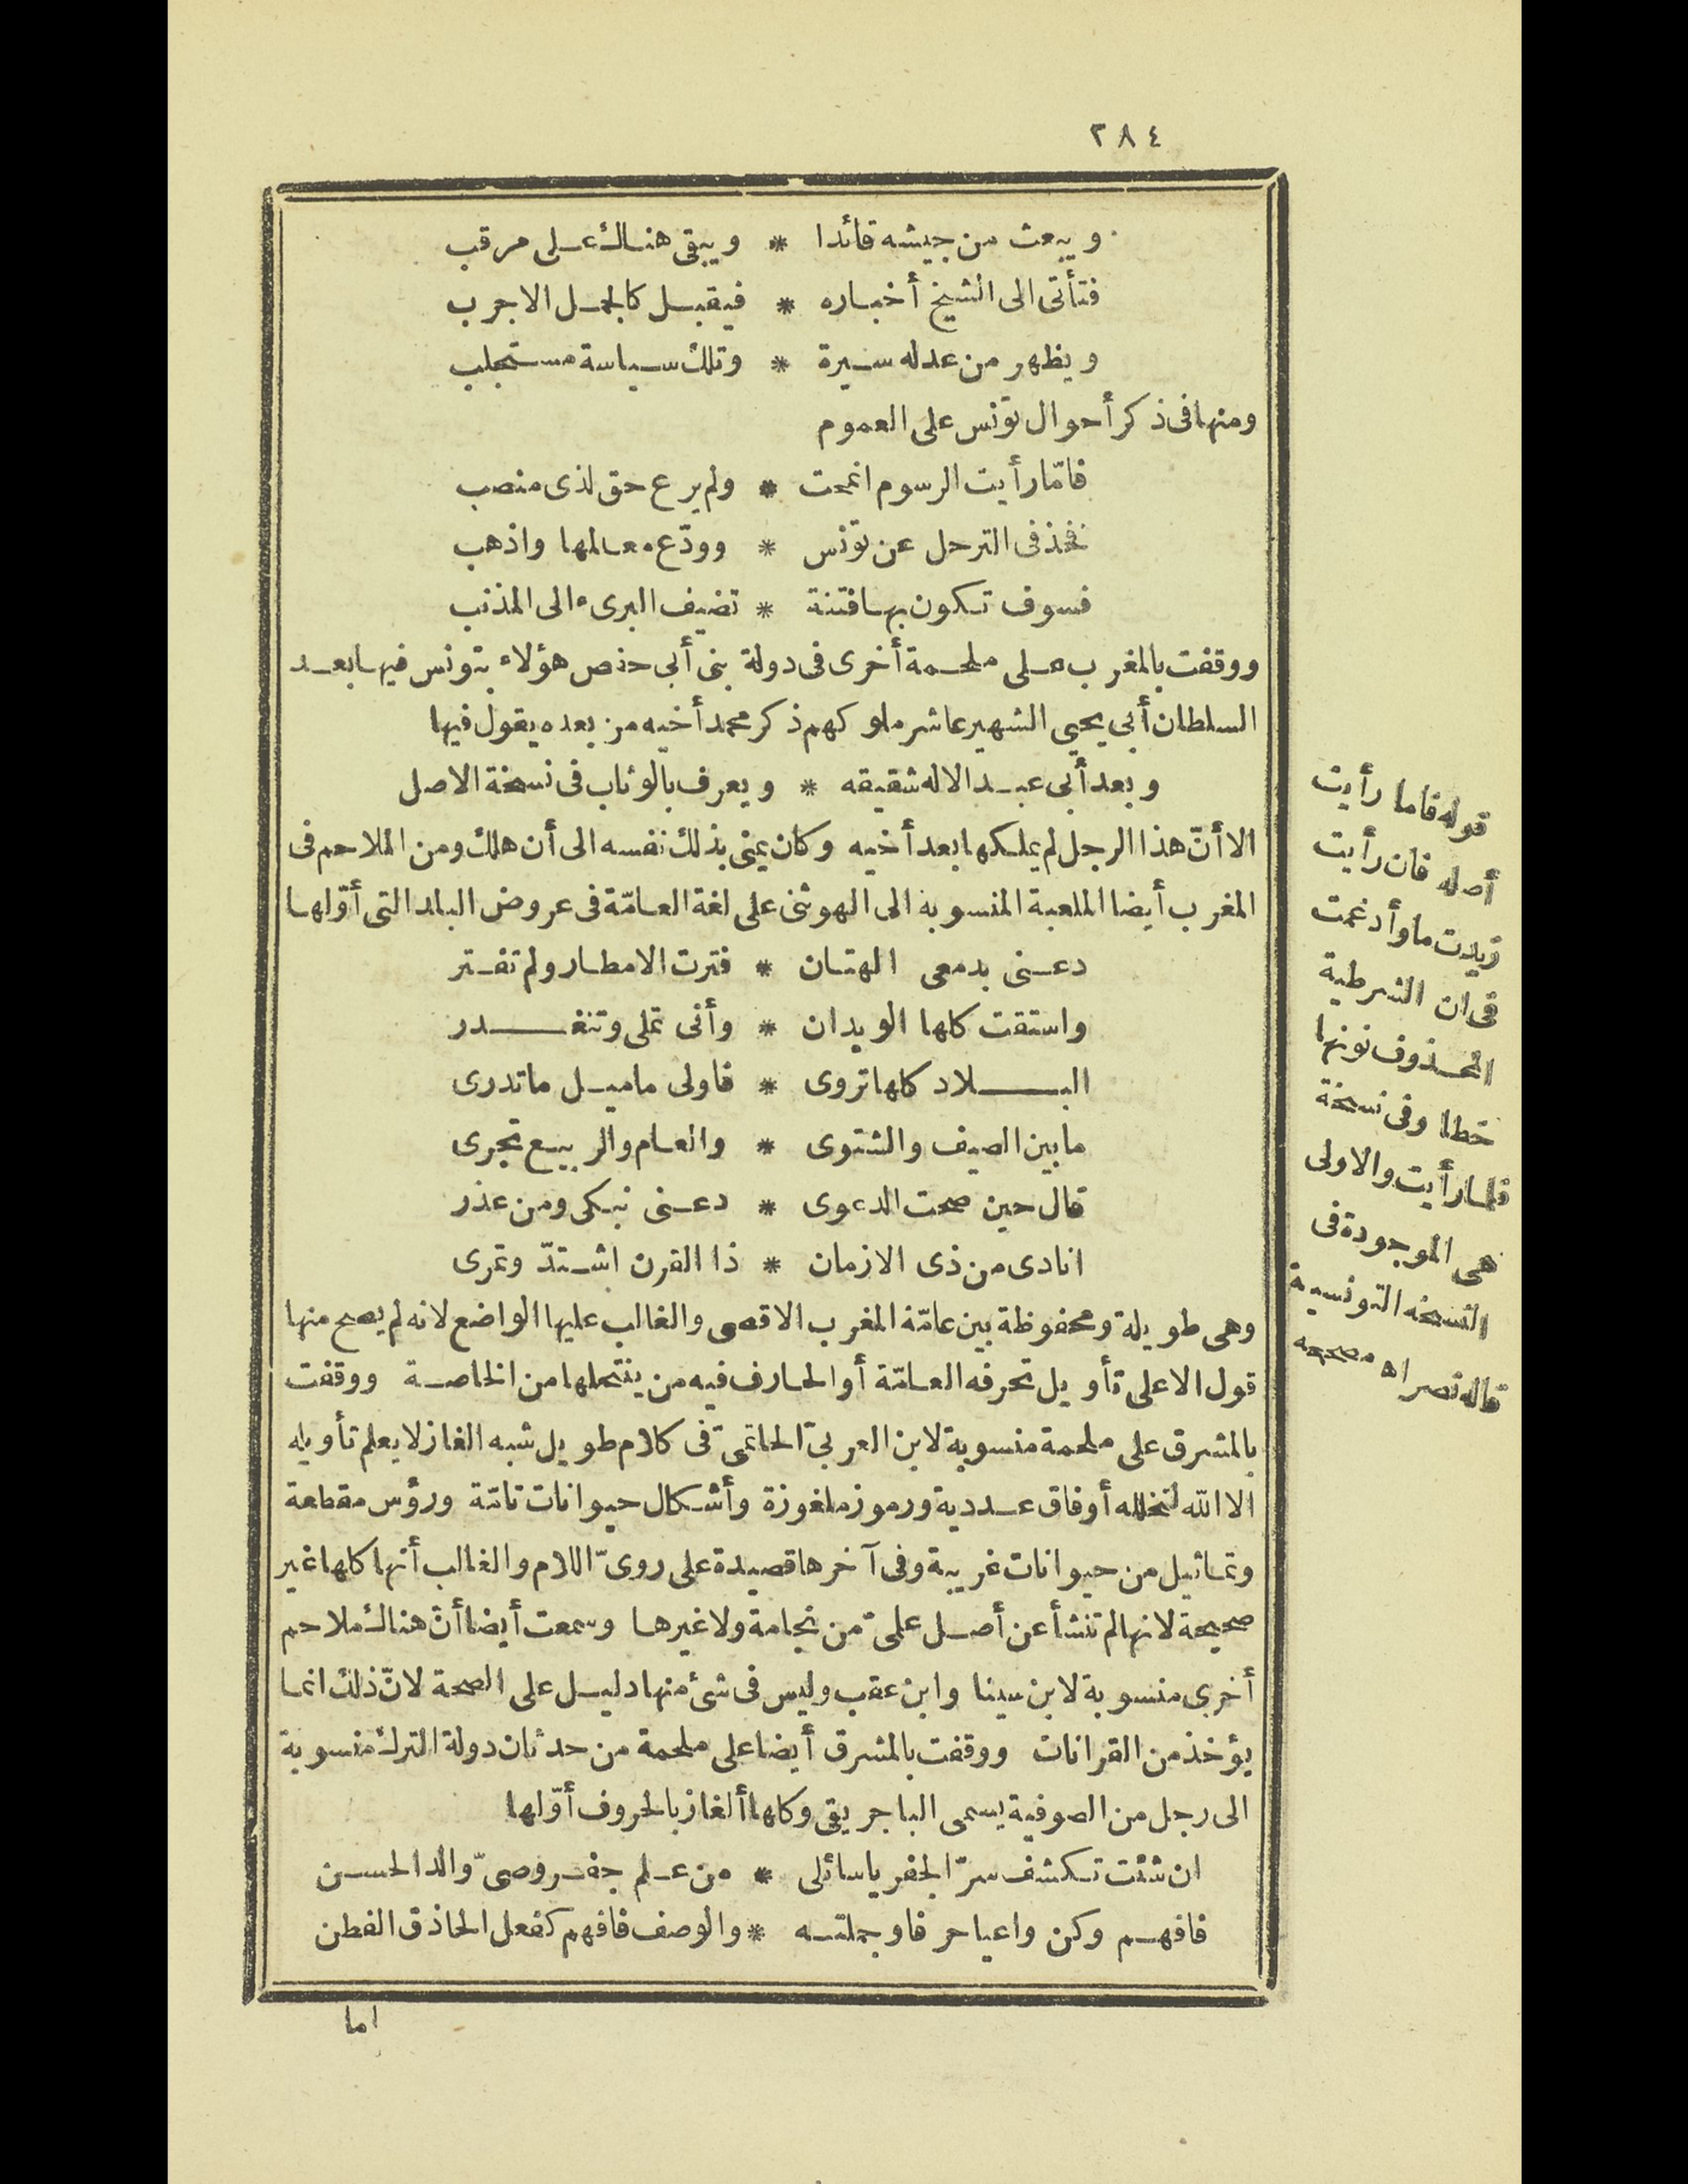 ٢٨٤
ويبعث من جيشه قائدا * ويبقى هناك على مرقب
فتأتى الى الشيخ أخباره * فيقبل كالجمل الاجرب
ويظهر من عدله سيرة * وتلك سياسة مستجلب
ومنها فى ذكر أحوال تونس على العموم
فامّا رأيت الرسوم انمحت * ولم يرع حق لذى منصب
فخذ فى الترحل عن تونس * وودّع معالمها واذهب
فسوف تكون بها فتنة * تضيف البرىء الى المذنب
ووقفت بالمغرب على ملحمة أخرى فى دولة بنى أبى حفص هؤلاء بتونس فيها بعد
السلطان أبى يحيى الشهير عاشر ملوكهم ذكر محمد أخيه من بعده يقول فيها
وبعد أبى عبد الاله شقيقه * ويعرف بالوثاب فى نسخة الاصل
الا أنّ هذا الرجل لم يملكها بعد أخيه وكان يمنى بذلك نفسه الى أن هلك ومن الملاحم فى
المغرب أيضا الملعبة المنسوبة الى الهوشنى على لغة العامّة فى عروض البلد التى أوّلها
دعنى بدمعى الهتان * فترت الامطار ولم تفتر
واستقت كلها الويدان * وأنى تملى وتنغدر
البلاد كلها تروى * فاولى ماميل ماتدرى
مابين الصيف والشتوى * والعام والربيع تجرى
قال حين صحت الدعوى * دعنى نبكى ومن عذر
انادى من ذى الازمان * ذا القرن اشتدّ وتمرى
وهى طويلة ومحفوظة بين عامّة المغرب الاقصى والغالب عليها الواضع لانه لم يصح منها
قول الا على تأويل تحرفه العامّة أو الحارف فيه من ينتحلها من الخاصة ووقفت
بالمشرق على ملحمة منسوبة لابن العربىّ الحاتمىّ فى كلام طويل شبه الغاز لا يعلم تأويله
الا الله لتخلله أوفاق عددية ورموز ملغوزة وأشكال حيوانات تامّة ورؤس مقطعة
وتماثيل من حيوانات غريبة وفى آخرها قصيدة على روىّ اللام والغالب أنها كلها غير
صحيحة لانها لم تنشأ عن أصل علمىّ من نجامة ولا غيرها وسمعت أيضا أنّ هناك ملاحم
أخرى منسوبة لابن سينا وابن عقب وليس فى شئ منها دليل على الصحة لانّ ذلك انما
يؤخذ من القرانات ووقفت بالمشرق أيضا على ملحمة من حدثان دولة الترك منسوبة
الى رجل من الصوفية يسمى الباجريقى وكلها ألغاز بالحروف أوّلها
ان شئت تكشف سرّ الجفر ياسائلى * من علم جفر وصىّ والد الحسن
فافهم وكن واعيا حرفا وجملته * والوصف فافهم كفعل الحاذق الفطن
اما
قوله فاما رأيت
أصله فان رأيت
زيدت ما وأدغمت
فى ان الشرطية
المحذوف نونها
خطا وفى نسخة
فلما رأيت والاولى
هى الموجودة فى
النسخة التونسية
قاله نصر اه مصححه